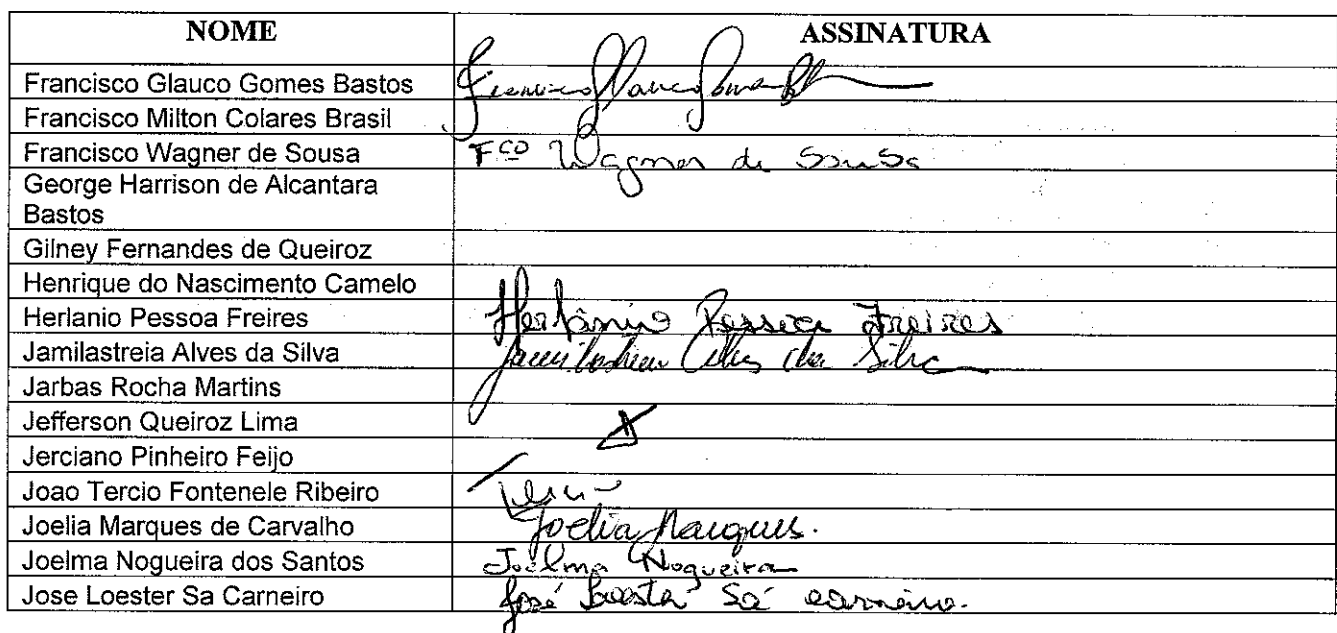 NOME ASSINATURA
Francisco Glauco Gomes Bastos Francisco Glauco Gomes
Francisco Milton Colares Brasil
Francisco Wagner de Sousa Fco Wagner de Sousa
George Harrison de Alcantara
Bastos
Gilney Fernandes de Queiroz
Henrique do Nascimento Camelo
Herlanio Pessoa Freires Herlânio Pessoa Freires
Jamilastreia Alves da Silva Jamilastreia Alves da Silva
Jarbas Rocha Martins
Jefferson Queiroz Lima
Jerciano Pinheiro Feijo
Joao Tercio Fontenele Ribeiro Tercio
Joelia Marques de Carvalho Joelia Marques.
Joelma Nogueira dos Santos Joelma Nogueira
Jose Loester Sa Carneiro José Loester Sá carneiro.